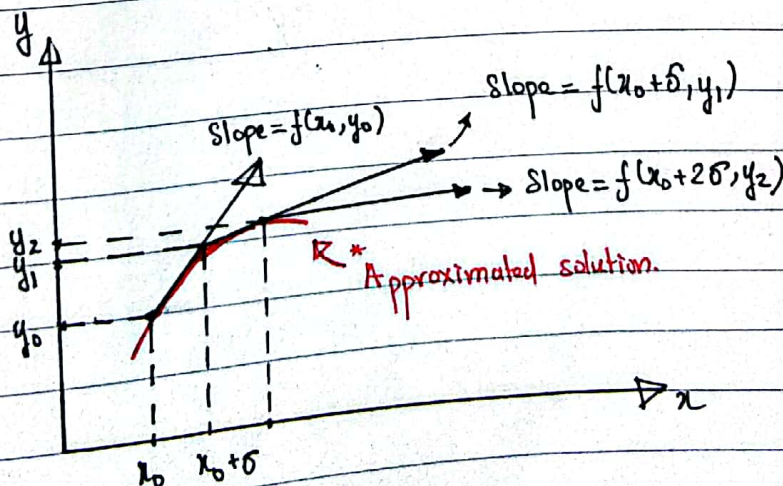 y
Slope = f(x₀+δ, y₁)
Slope = f(x₀, y₀)
Slope = f(x₀+2δ, y₂)
y₂
y₁
* Approximated solution.
y₀
x
x₀
x₀+δ